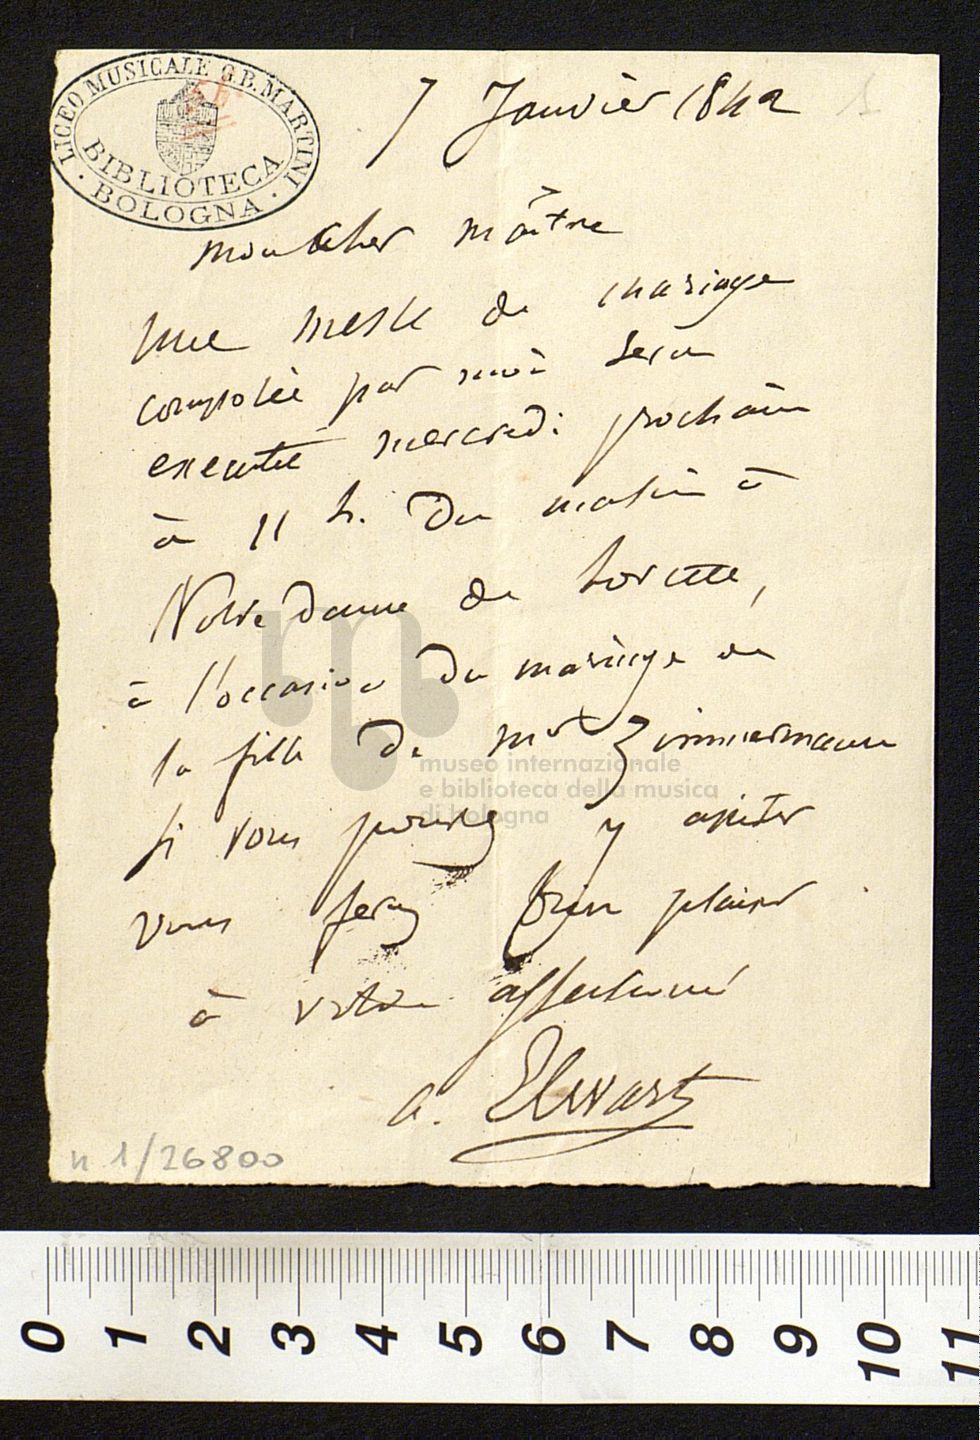 LICEO MUSICALE G.B. MARTINI
BIBLIOTECA
BOLOGNA
7 Janvier 1842
mon cher maître
Une messe de mariage
composée par moi sera
executée mercredi prochain
à 11 h. du matin à
Notre Dame de Lorette,
à l'occasion du mariage de
la fille de Mr Zimmermann
si vous pouvez y assister
vous ferez bien plaisir
à votre affectionné
a. Elwart
n 1/26800
museo internazionale
e biblioteca della musica
di bologna
0 1 2 3 4 5 6 7 8 9 10 11